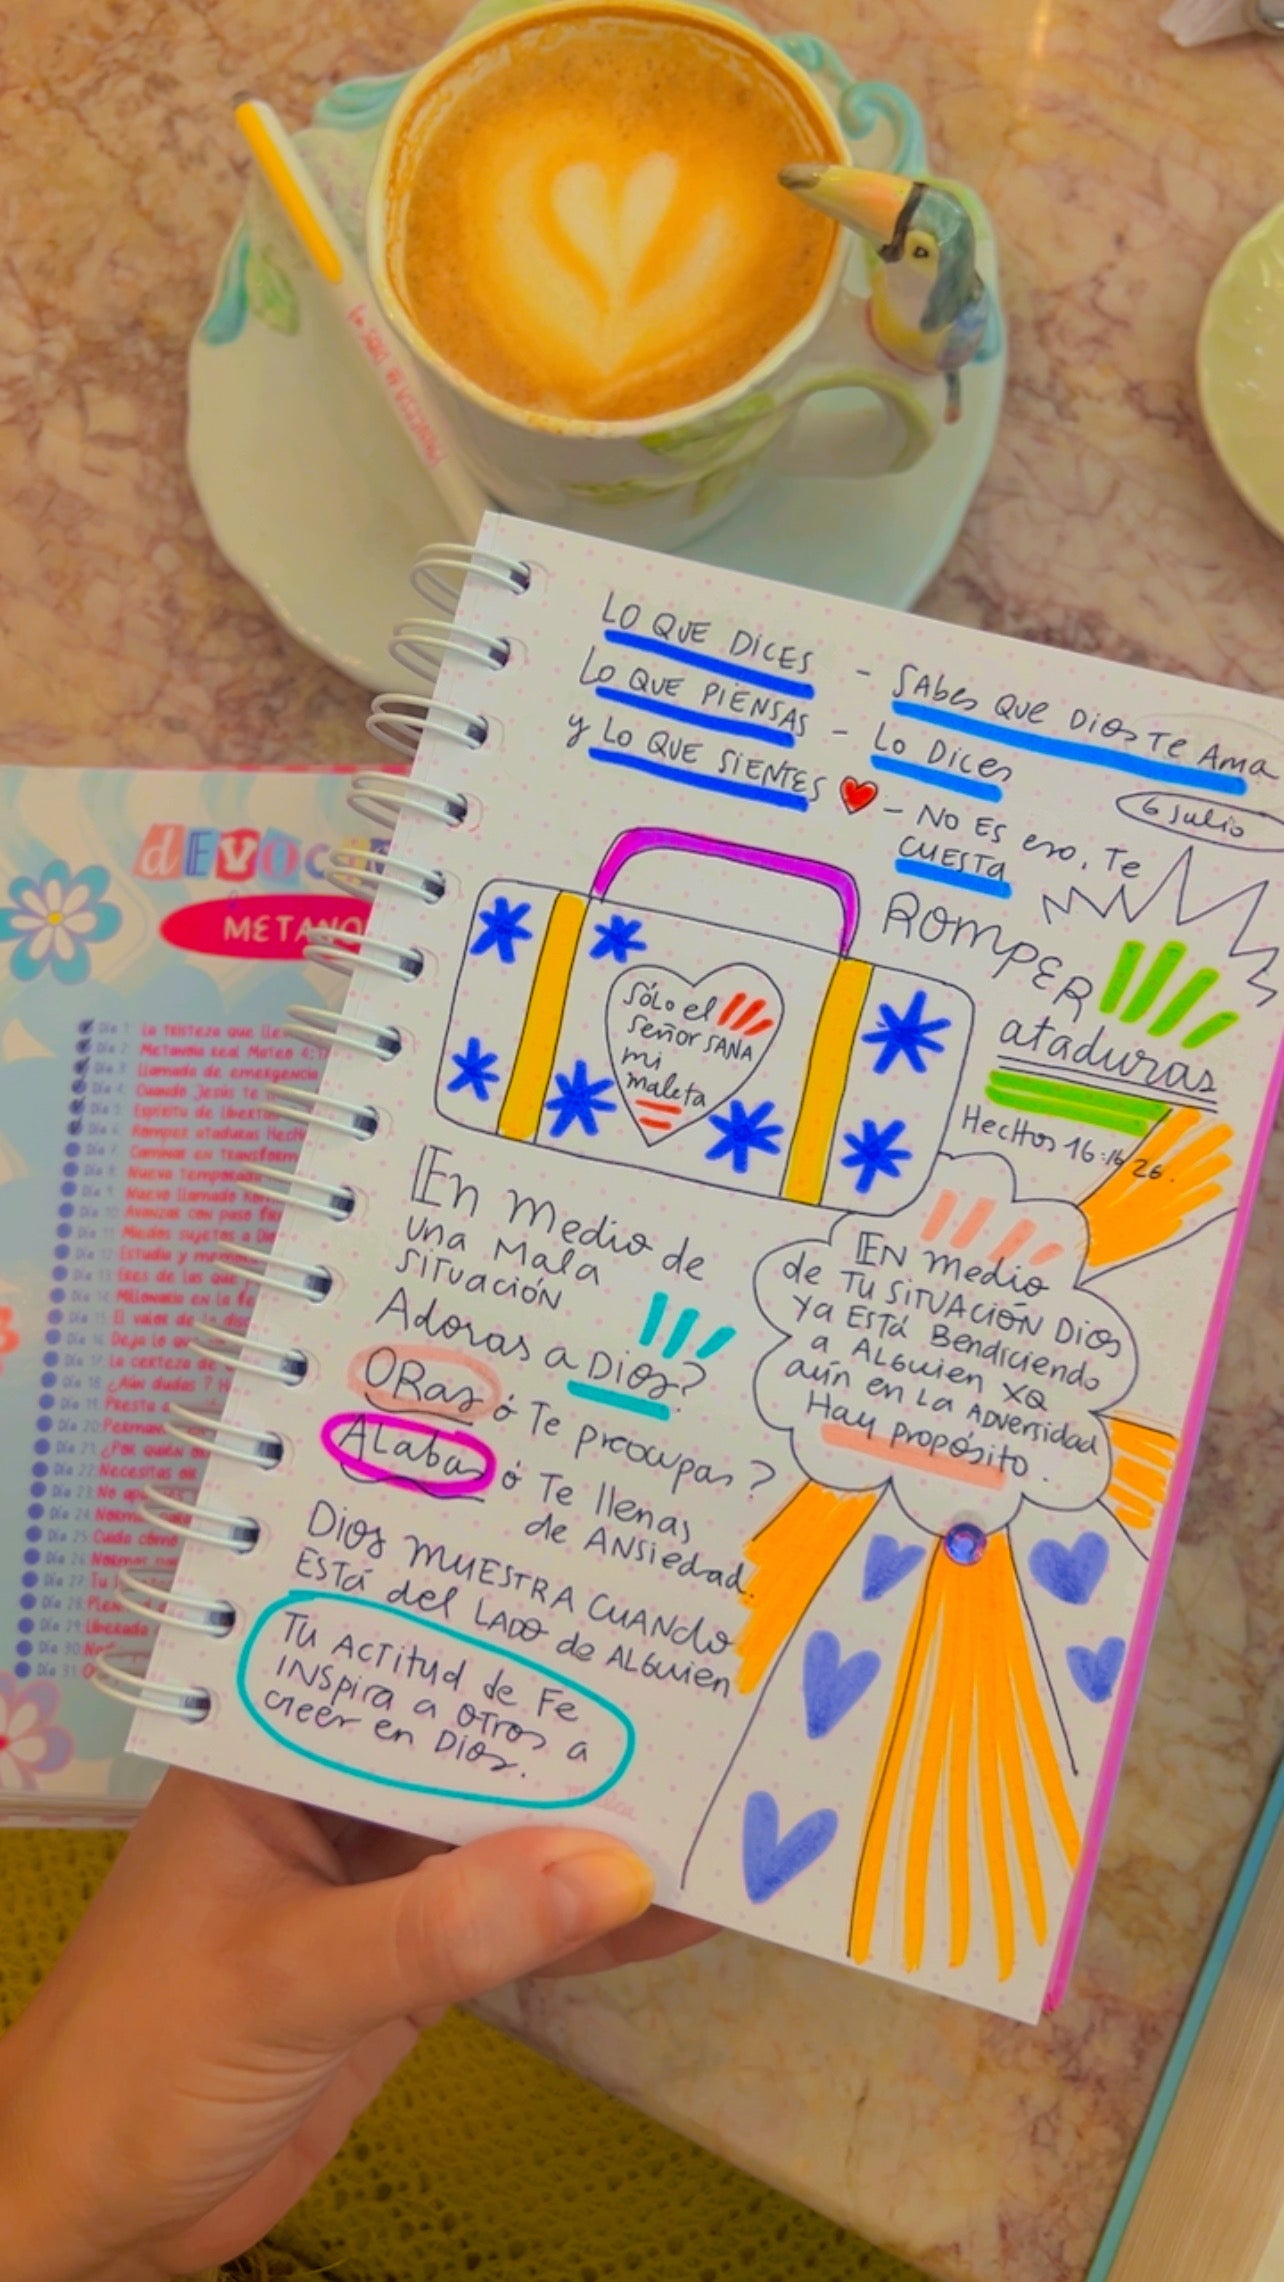 LO QUE DICES
LO QUE PIENSAS
y LO QUE SIENTES
- SAbes QUE DIOS Te Ama
- Lo Dices
- NO ES eso, Te
CUESTA
6 Julio
ROMPER
ataduras
HecHos 16:16 26.
SÓLO el
Señor SANA
mi
maleta
En Medio de
una Mala
SITUACIÓN
Adoras a Dios?
ORas ó Te preocupas?
ALabas ó Te llenas
de ANSiedad.
Dios MUESTRA CUANdo
ESTá del LADO de ALGuien
Tu ACTITud de Fe
INSpira a OTros a
creer en Dios.
EN Medio
de TU SITUACIÓN Dios
Ya ESTá Bendiciendo
a ALGuien XQ
aún en La ADVersidad
Hay propósito.
DEVOC
METANO
Día 1 La tristeza que lle
Día 2 Metanoia real Mateo 4:17
Día 3 Llamado de emergencia
Día 4 Cuando Jesús te
Día 5 Espíritu de libertad
Día 6 Romper ataduras Hech
Día 7 Caminar en transform
Día 8 Nueva temporada
Día 9 Nuevo llamado
Día 10 Avanzas con paso fir
Día 11 Miedos sujetos a Dio
Día 12 Estudia y
Día 13 Eres de las que
Día 14 Millonario en la fe
Día 15 El valor de la disc
Día 16 Deja lo que
Día 17 La certeza de
Día 18 ¿Aún dudas?
Día 19 Presta a
Día 20 Perman
Día 21 ¿Por quién
Día 22 Necesitas
Día 23 No
Día 24
Día 25 Cuida cómo
Día 26
Día 27 Tu
Día 28
Día 29 Liberada
Día 30
Día 31